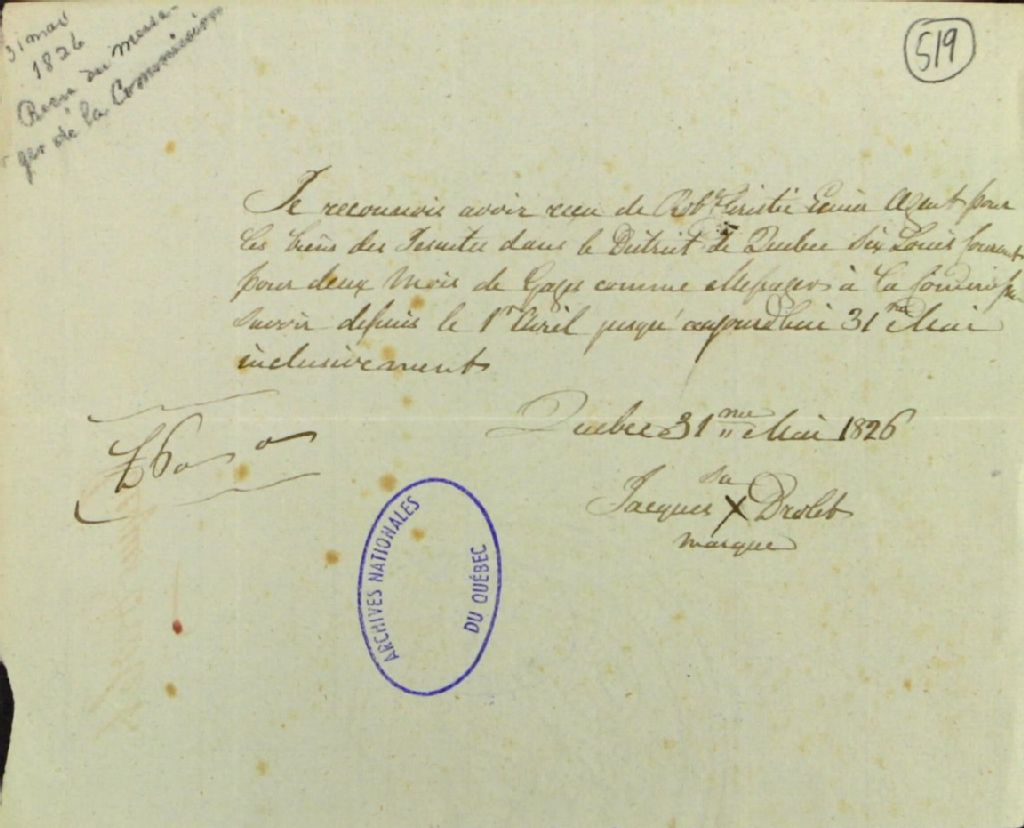 31 mai
1826
Recu du messa-
ger de la Commission
519
Je reconnois avoir recu de Robt Christie Ecuier Agent pour
les biens des Jesuites dans le District de Quebec Six Louis courant
pour deux Mois de Gages comme Messager à la
savoir depuis le 1er Avril jusqu' aujourdhui 31me Mai
inclusivement
Quebec 31me Mai 1826
£6 " 0 " 0
sa
Jacques X Drolet
marque
ARCHIVES NATIONALES
DU QUÉBEC